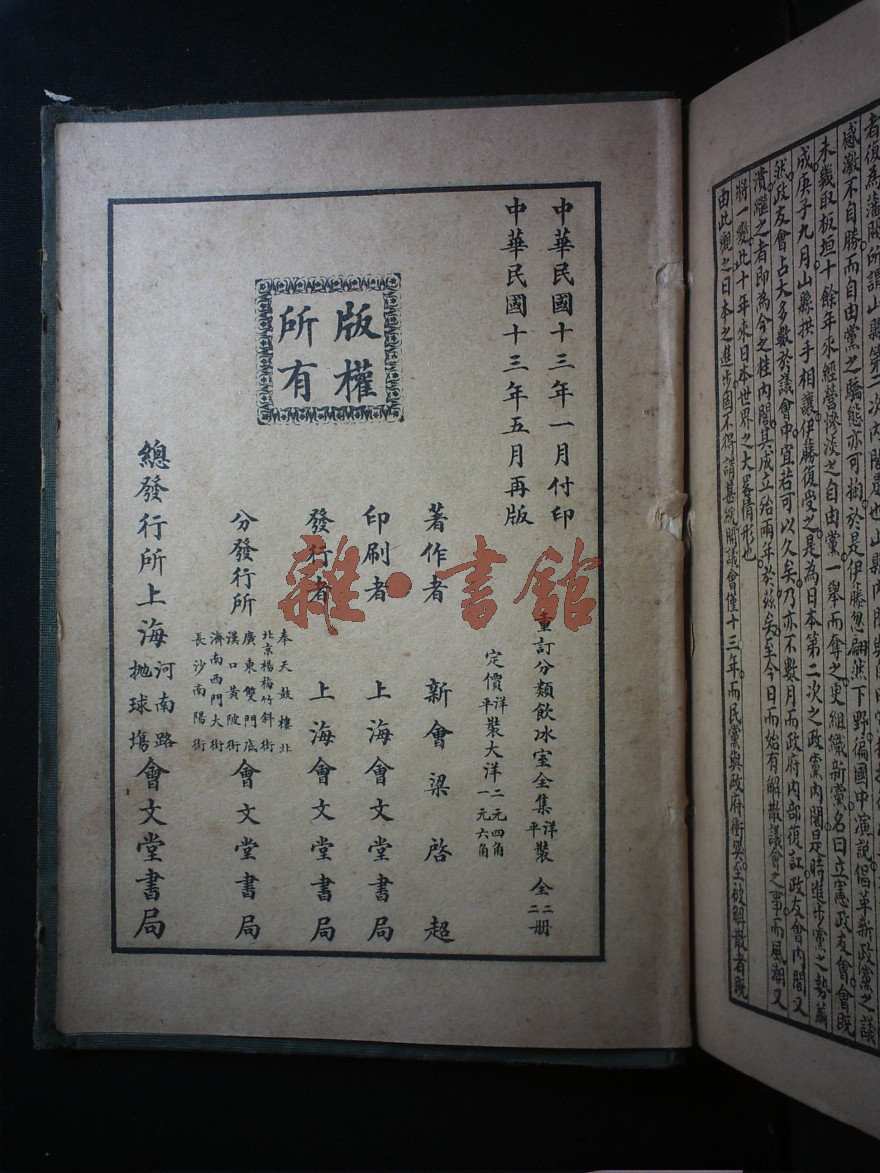 者復為藩閥所謂山縣第二次內閣是也山縣內閣與
感激不自勝而自由黨之驕態亦可掬於是伊藤忽翩然下野徧國中演說倡革新政黨之議
未幾取板垣十餘年來經營慘淡之自由黨一舉而奪之更組織新黨名曰立憲政友會會既
成庚子九月山縣拱手相讓伊藤復受之是為日本第二次之政黨內閣是時進步黨之勢萬
然政友會占大多數於議會中宜若可以久矣乃亦不數月而政府內部復訌政友會內閣又
潰繼之者即為今之桂內閣其成立殆兩年於茲矣至今日而始有解散議會之事而風潮又
將一變此十年來日本世界之大畧情形也
由此觀之日本之進步固不得謂甚緩開議會僅十三年而民黨與政府衝突至被解散者既
中華民國十三年一月付印
中華民國十三年五月再版
版權
所有
重訂分類飲冰室全集 洋平裝 全二二册
定價 洋平裝大洋二元四角 一元六角
著作者 新會梁啓超
印刷者 上海會文堂書局
發行者 上海會文堂書局
分發行所 奉天鼓樓北 北京楊梅竹斜街 廣東雙門底 漢口黃陂街 濟南西門大街 長沙南陽街 會文堂書局
總發行所上海 河南路 拋球塲 會文堂書局
雜·書館